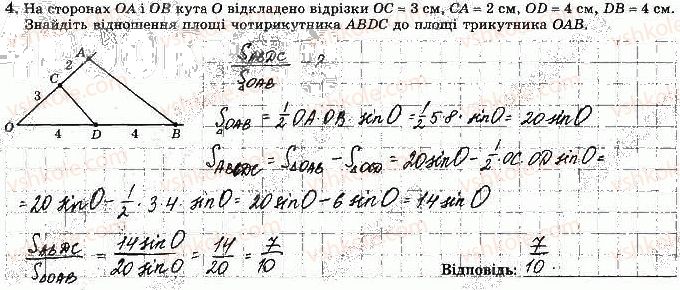 4. На сторонах OA і OB кута O відкладено відрізки OC = 3 см, CA = 2 см, OD = 4 см, DB = 4 см.
Знайдіть відношення площі чотирикутника ABDC до площі трикутника OAB.
A
2
C
3
O 4 D 4 B
S_ABDC / S_OAB - ?
S_OAB = 1/2 OA·OB·sinO = 1/2 5·8·sinO = 20 sinO
S_ABDC = S_OAB − S_COD = 20 sinO − 1/2·OC·OD sinO =
= 20 sinO − 1/2·3·4·sinO = 20 sinO − 6 sinO = 14 sinO
S_ABDC / S_OAB = 14 sinO / 20 sinO = 14/20 = 7/10
Відповідь: 7/10.